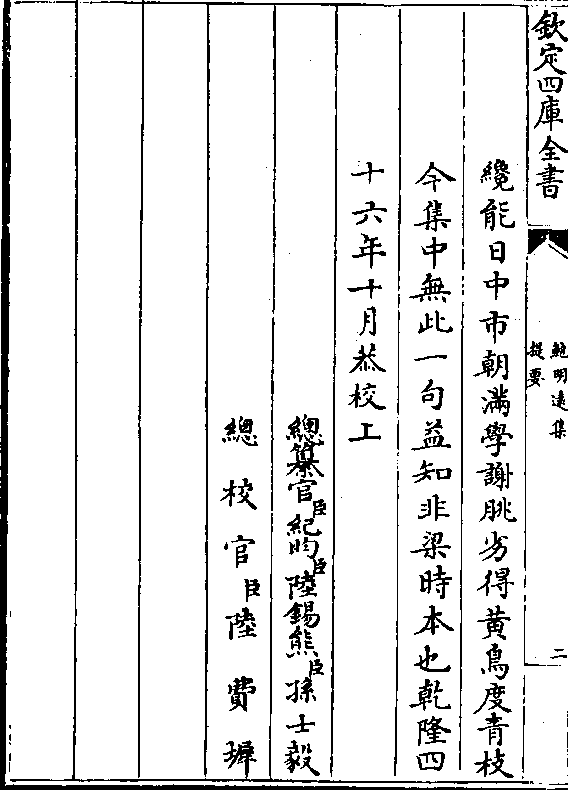 欽定四庫全書
鮑明遠集
提要
二
纔能日中市朝滿學謝朓劣得黃鳥度青枝
今集中無此一句益知非梁時本也乾隆四
十六年十月恭校上
總纂官臣紀昀臣陸錫熊臣孫士毅
總校官臣陸費墀